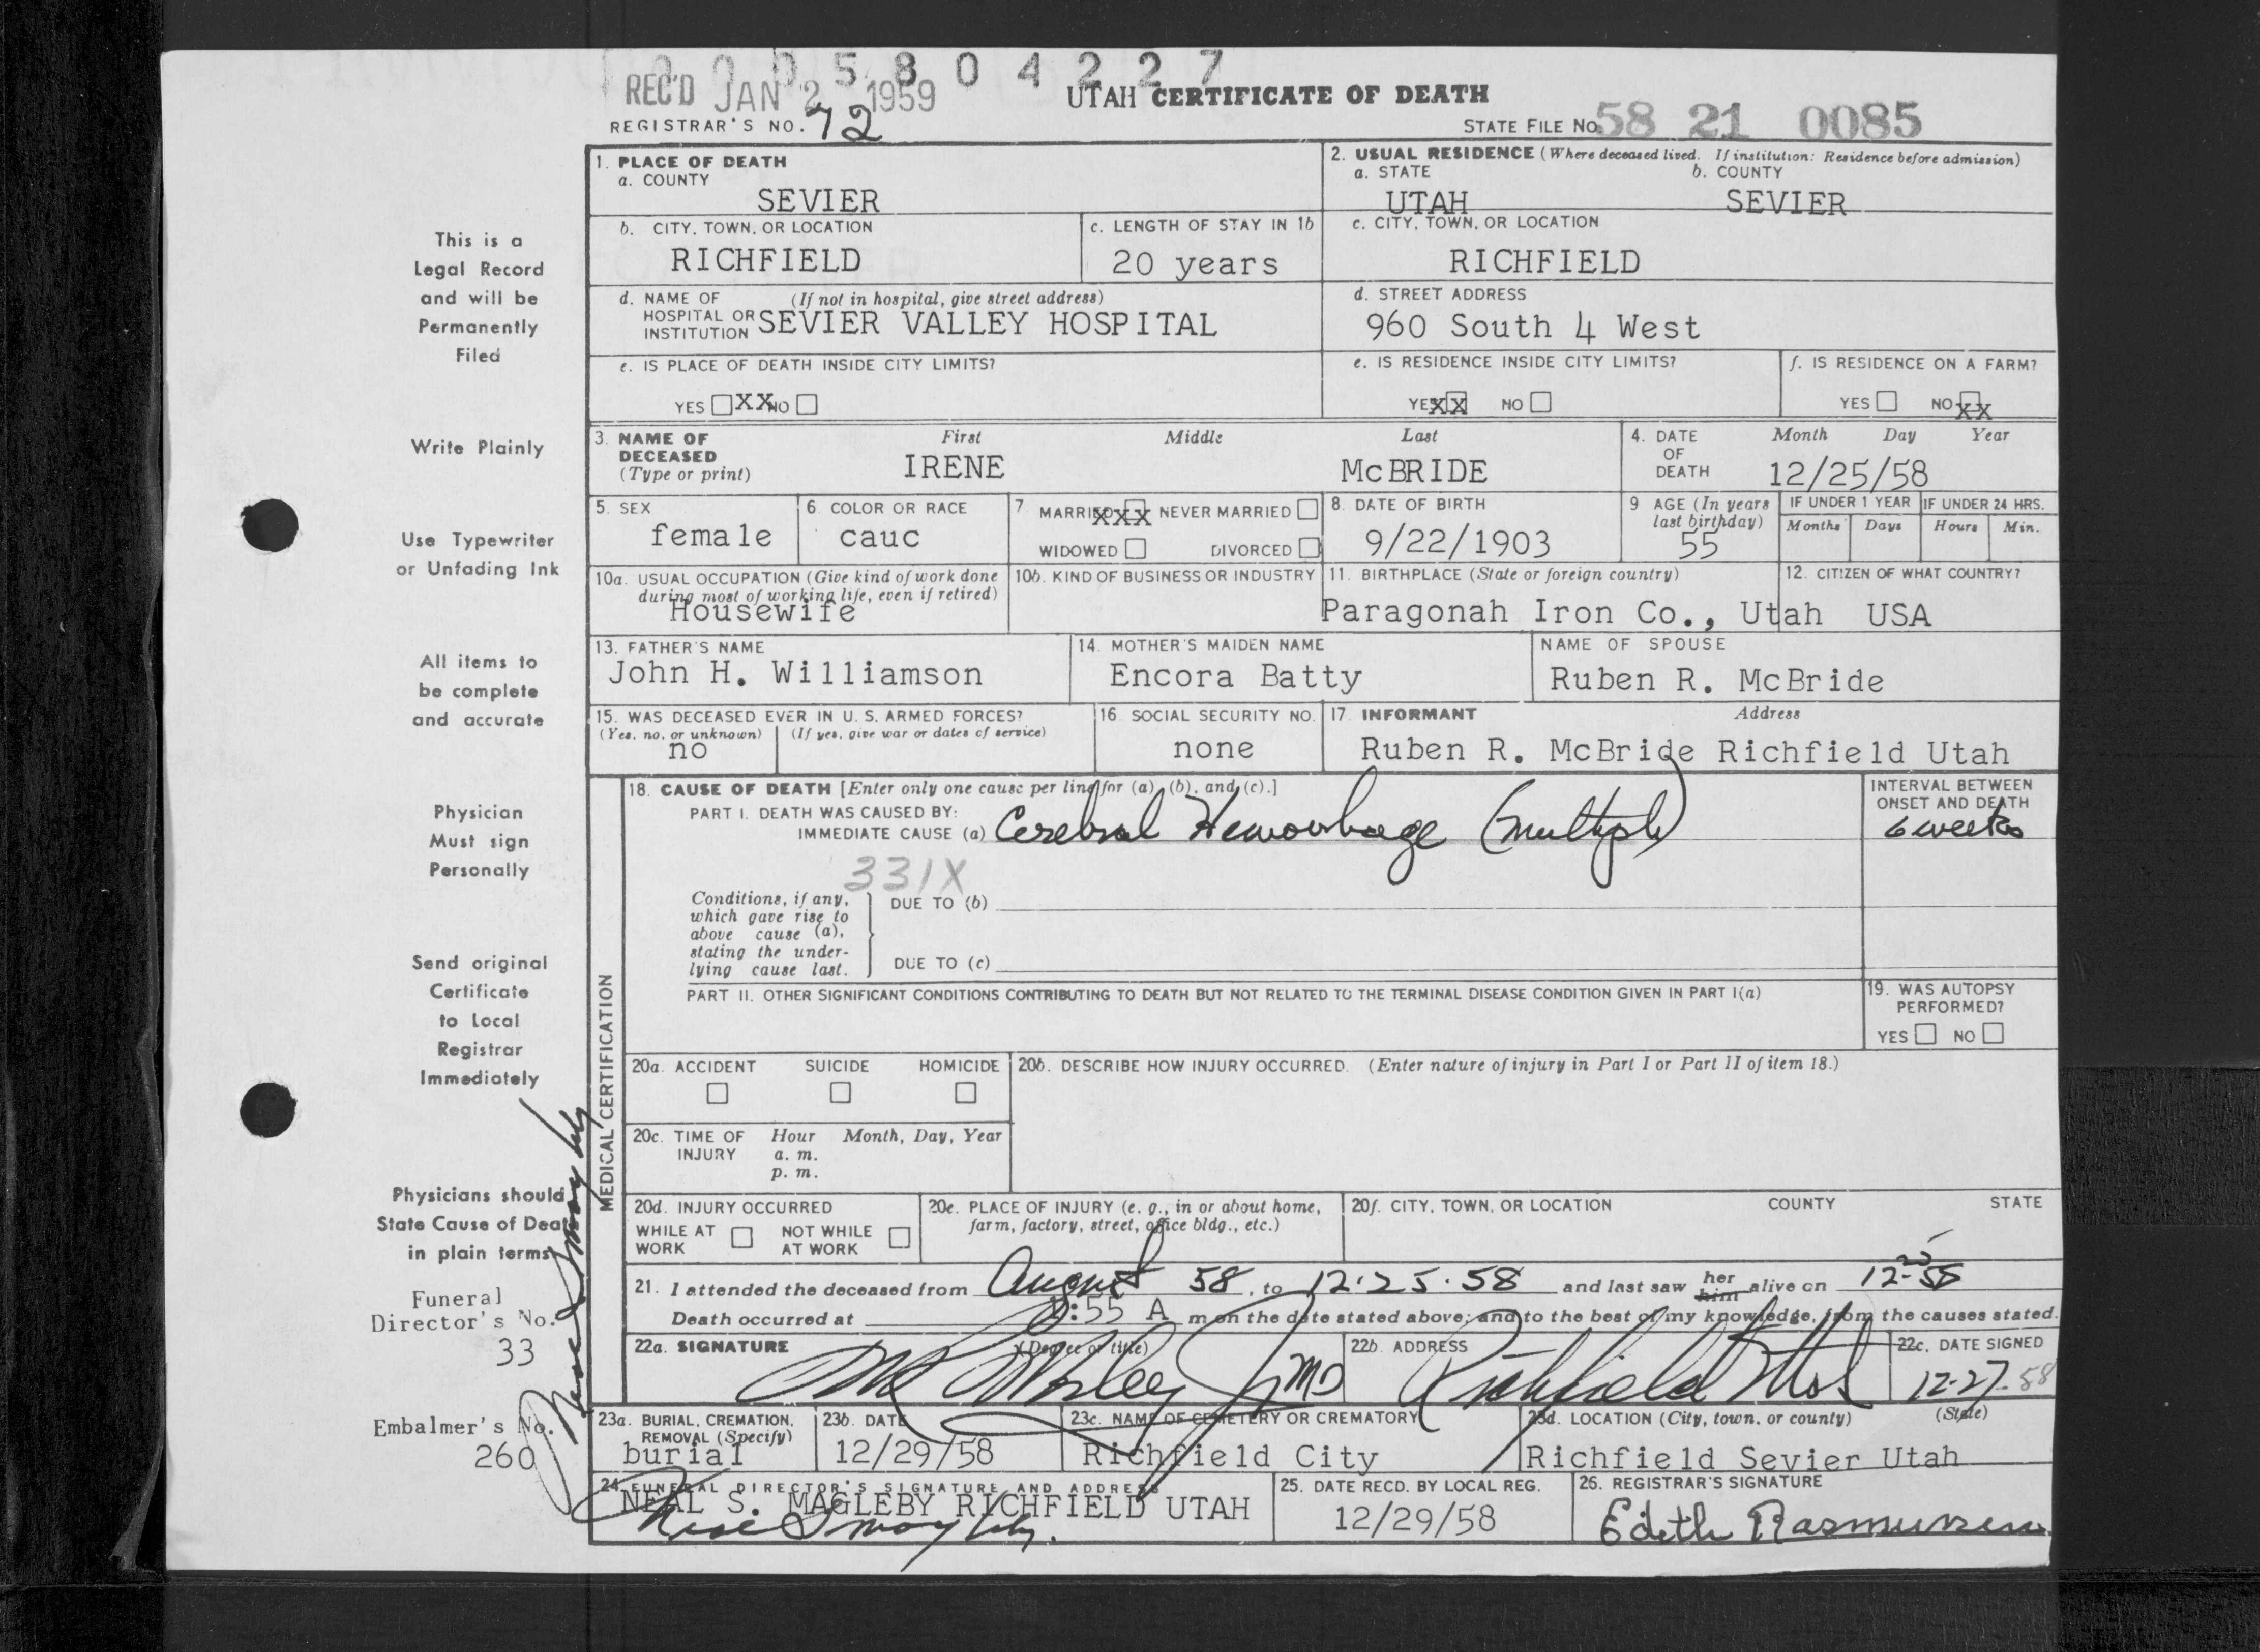 0 0 0 5 8 0 4 2 2 7
REC'D JAN 2 1959
UTAH CERTIFICATE OF DEATH
REGISTRAR'S NO. 72
STATE FILE NO. 58 21 0085
1. PLACE OF DEATH
a. COUNTY
SEVIER
2. USUAL RESIDENCE (Where deceased lived. If institution: Residence before admission)
a. STATE b. COUNTY
UTAH SEVIER
b. CITY, TOWN, OR LOCATION
RICHFIELD
c. LENGTH OF STAY IN 1b
20 years
c. CITY, TOWN, OR LOCATION
RICHFIELD
d. NAME OF (If not in hospital, give street address)
HOSPITAL OR
INSTITUTION SEVIER VALLEY HOSPITAL
d. STREET ADDRESS
960 South 4 West
e. IS PLACE OF DEATH INSIDE CITY LIMITS?
YES XX NO
e. IS RESIDENCE INSIDE CITY LIMITS?
YES XX NO
f. IS RESIDENCE ON A FARM?
YES NO XX
3. NAME OF
DECEASED
(Type or print)
First Middle Last
IRENE McBRIDE
4. DATE
OF
DEATH
Month Day Year
12/25/58
5. SEX
female
6. COLOR OR RACE
cauc
7 MARRIED XXX NEVER MARRIED
WIDOWED DIVORCED
8. DATE OF BIRTH
9/22/1903
9 AGE (In years
last birthday)
55
IF UNDER 1 YEAR
Months Days
IF UNDER 24 HRS.
Hours Min.
10a. USUAL OCCUPATION (Give kind of work done
during most of working life, even if retired)
Housewife
10b. KIND OF BUSINESS OR INDUSTRY
11. BIRTHPLACE (State or foreign country)
Paragonah Iron Co., Utah
12. CITIZEN OF WHAT COUNTRY?
USA
13. FATHER'S NAME
John H. Williamson
14. MOTHER'S MAIDEN NAME
Encora Batty
NAME OF SPOUSE
Ruben R. McBride
15. WAS DECEASED EVER IN U. S. ARMED FORCES?
(Yes, no, or unknown) (If yes, give war or dates of service)
no
16. SOCIAL SECURITY NO.
none
17. INFORMANT Address
Ruben R. McBride Richfield Utah
18. CAUSE OF DEATH [Enter only one cause per line for (a), (b), and (c).]
PART I. DEATH WAS CAUSED BY:
IMMEDIATE CAUSE (a) Cerebral Hemorrhage (multiple)
INTERVAL BETWEEN
ONSET AND DEATH
6 weeks
331X
Conditions, if any,
which gave rise to
above cause (a),
stating the under-
lying cause last.
DUE TO (b)
DUE TO (c)
PART II. OTHER SIGNIFICANT CONDITIONS CONTRIBUTING TO DEATH BUT NOT RELATED TO THE TERMINAL DISEASE CONDITION GIVEN IN PART I(a)
19. WAS AUTOPSY
PERFORMED?
YES NO
MEDICAL CERTIFICATION
20a. ACCIDENT SUICIDE HOMICIDE
20b. DESCRIBE HOW INJURY OCCURRED. (Enter nature of injury in Part I or Part II of item 18.)
20c. TIME OF
INJURY
Hour Month, Day, Year
a. m.
p. m.
20d. INJURY OCCURRED
WHILE AT
WORK
NOT WHILE
AT WORK
20e. PLACE OF INJURY (e. g., in or about home,
farm, factory, street, office bldg., etc.)
20f. CITY, TOWN, OR LOCATION COUNTY STATE
21. I attended the deceased from August 58, to 12-25-58 and last saw her him alive on 12-25-58
Death occurred at :55 A m on the date stated above; and to the best of my knowledge, from the causes stated.
22a. SIGNATURE (Degree or title)
MD
22b. ADDRESS
Richfield Utah
22c. DATE SIGNED
12-27-58
23a. BURIAL, CREMATION,
REMOVAL (Specify)
burial
23b. DATE
12/29/58
23c. NAME OF CEMETERY OR CREMATORY
Richfield City
23d. LOCATION (City, town, or county) (State)
Richfield Sevier Utah
24. FUNERAL DIRECTOR'S SIGNATURE AND ADDRESS
NEAL S. MAGLEBY RICHFIELD UTAH
Neal S Magleby
25. DATE RECD. BY LOCAL REG.
12/29/58
26. REGISTRAR'S SIGNATURE
Edeth Rasmussen
This is a
Legal Record
and will be
Permanently
Filed
Write Plainly
Use Typewriter
or Unfading Ink
All items to
be complete
and accurate
Physician
Must sign
Personally
Send original
Certificate
to Local
Registrar
Immediately
Physicians should
State Cause of Death
in plain terms
Funeral
Director's No.
33
Embalmer's No.
260
Neal S Magleby